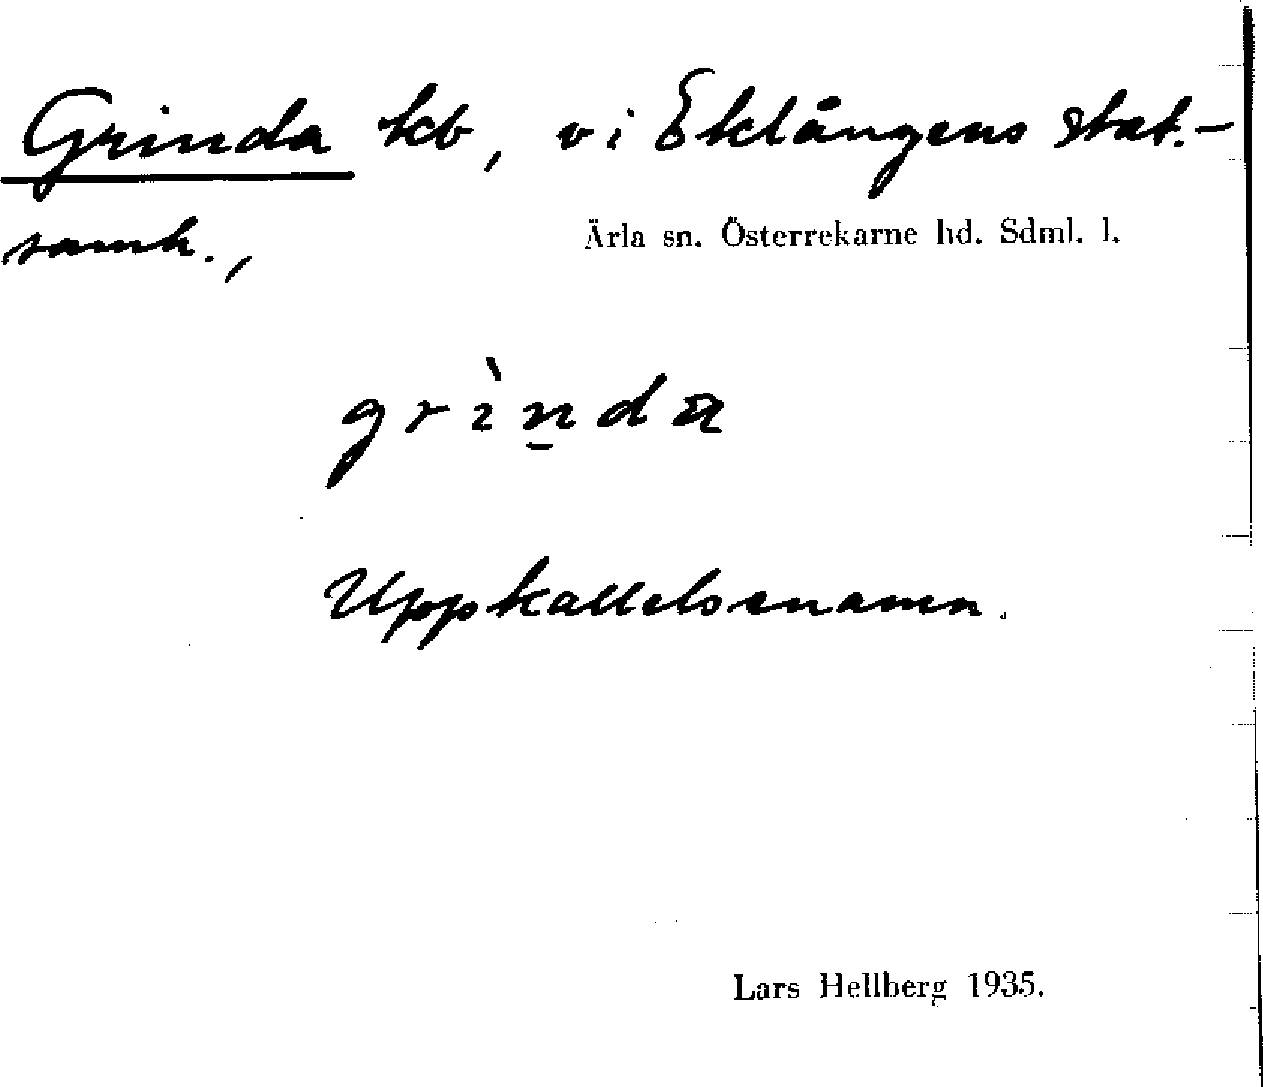 Grinda kb, vi Eklångens stat.-
samh.,
Ärla sn. Österrekarne hd. Sdml. l.
grìn̲da
Uppkallelsenamn.
Lars Hellberg 1935.